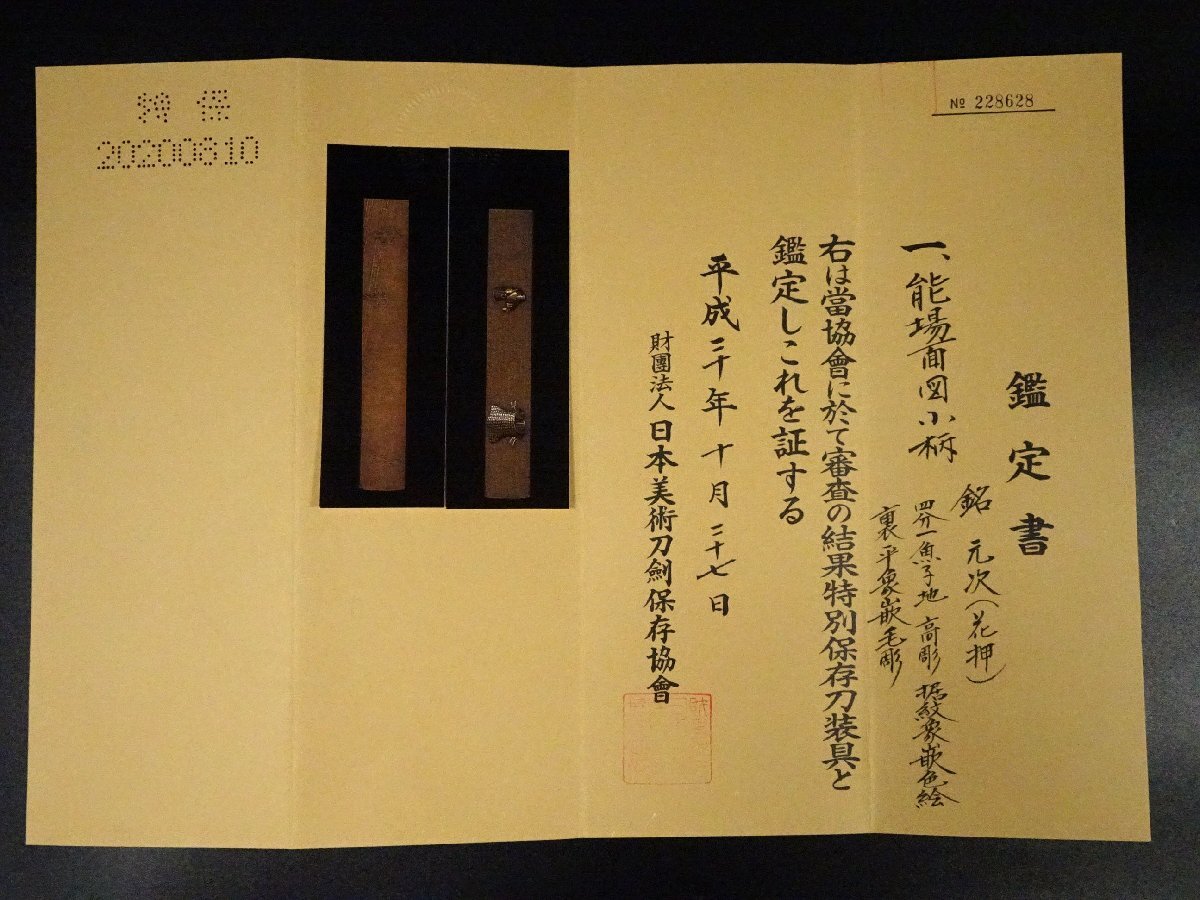 № 228628
鑑定書
一、能場面図小柄
銘 元次(花押)
四分一魚子地 高彫 据紋象嵌色絵
裏平象嵌毛彫
右は當協會に於て審査の結果特別保存刀装具と
鑑定しこれを証する
平成二十年十月二十七日
財團法人日本美術刀劍保存協會
特保
20200810